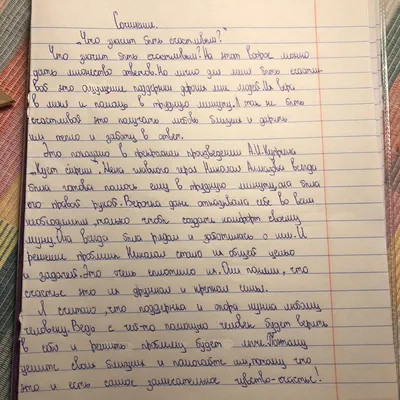 Сочинение.
"Что значит быть счастливым?"
Что значит быть счастливым? На этот вопрос можно
дать множество ответов. Но лично для меня быть счастли-
вой это ощущение поддержки дорогих мне людей. Их вера
в меня и помощь в трудную минуту. А так же быть
счастливой это получать любовь близких и дарить
им тепло и заботу в ответ.
Это показано в прекрасном произведении А.И. Куприна
"Куст сирени". Жена главного героя Николая Алмазова всегда
была готова помочь ему в трудную минуту, она была
его правой рукой. Верочка даже отказывала себе во всем
необходимом, только чтобы создать комфорт своему
мужу. Она всегда была рядом и заботилась о нём. И
решение проблемы Николая стало их общей целью
и задачей. Это очень сплотило их. Они поняли, что
счастье это их дружная и крепкая семья.
Я считаю, что поддержка и опора нужна любому
человеку. Ведь с чей-то помощью человек будет верить
в себя и решить проблему будет легче. Поэтому
цените своих близких и помогайте им, потому что
это и есть самое замечательное чувство-счастье!